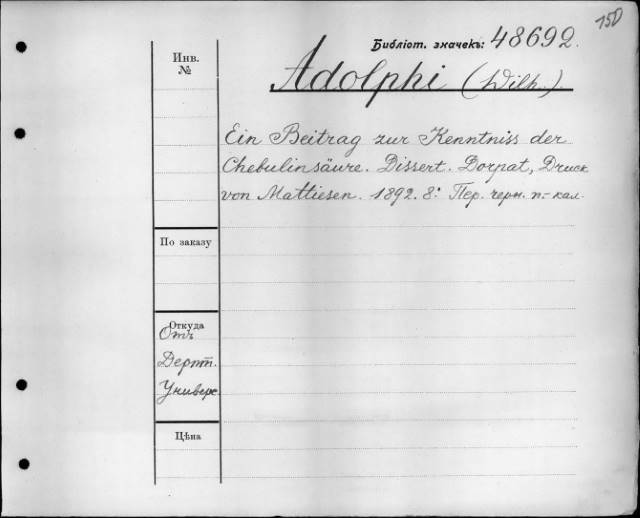 150
Библіот. значекъ: 48692.
Инв.
№
Adolphi (Wilh.)
Ein Beitrag zur Kenntniss der
Chebulinsäure. Dissert. Dorpat, Druck
von Mattiesen. 1892. 8º. Пер. черн. п.- кал.
По заказу
Откуда
Отъ
Дерпт.
Универс
Цѣна